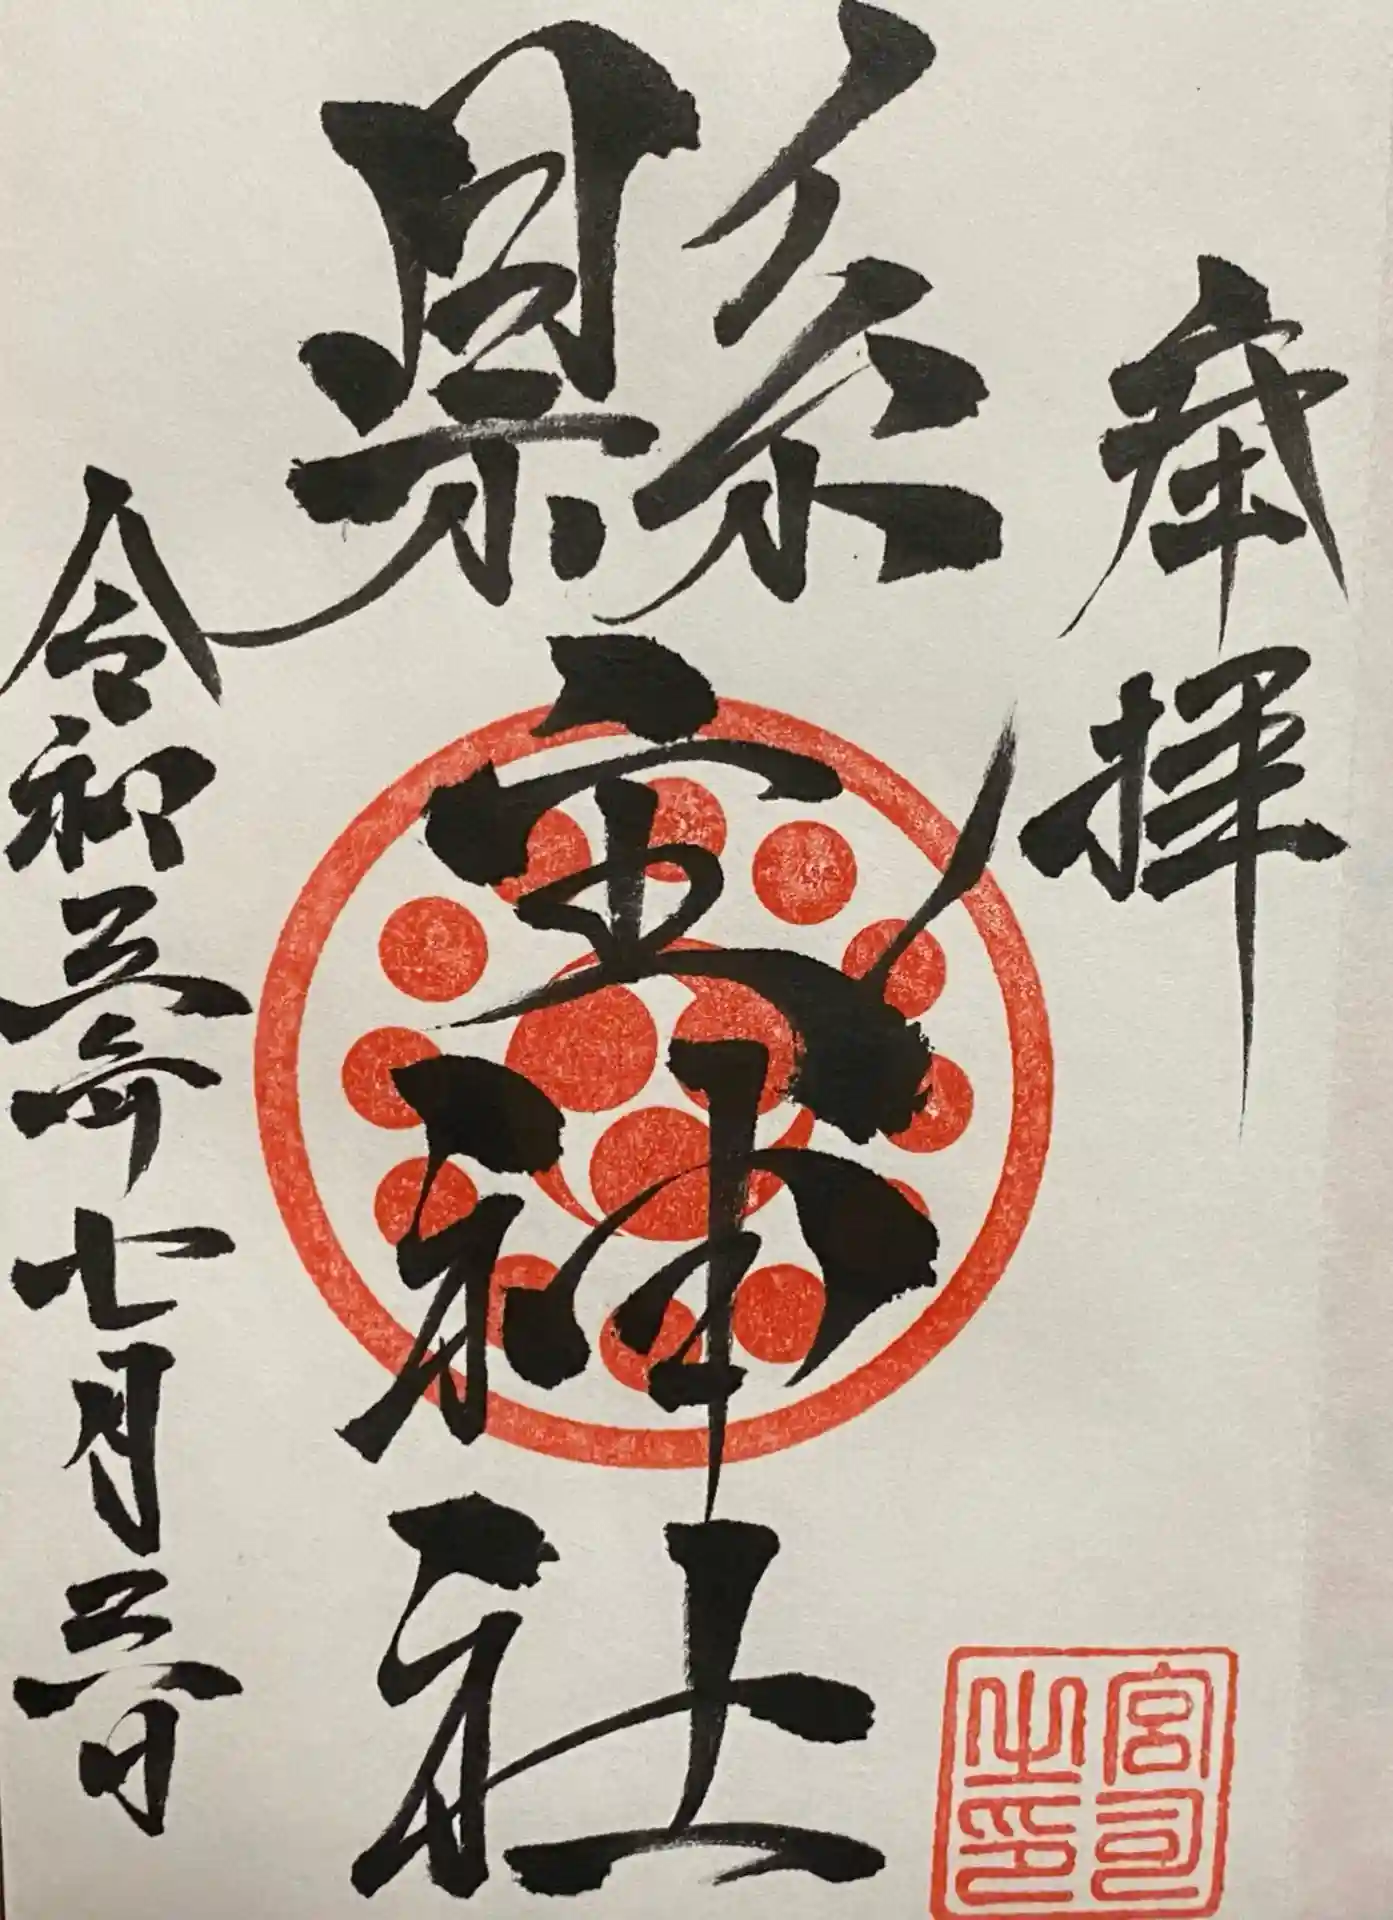 奉拝
縣神社
令和三年七月三日
宮司之印